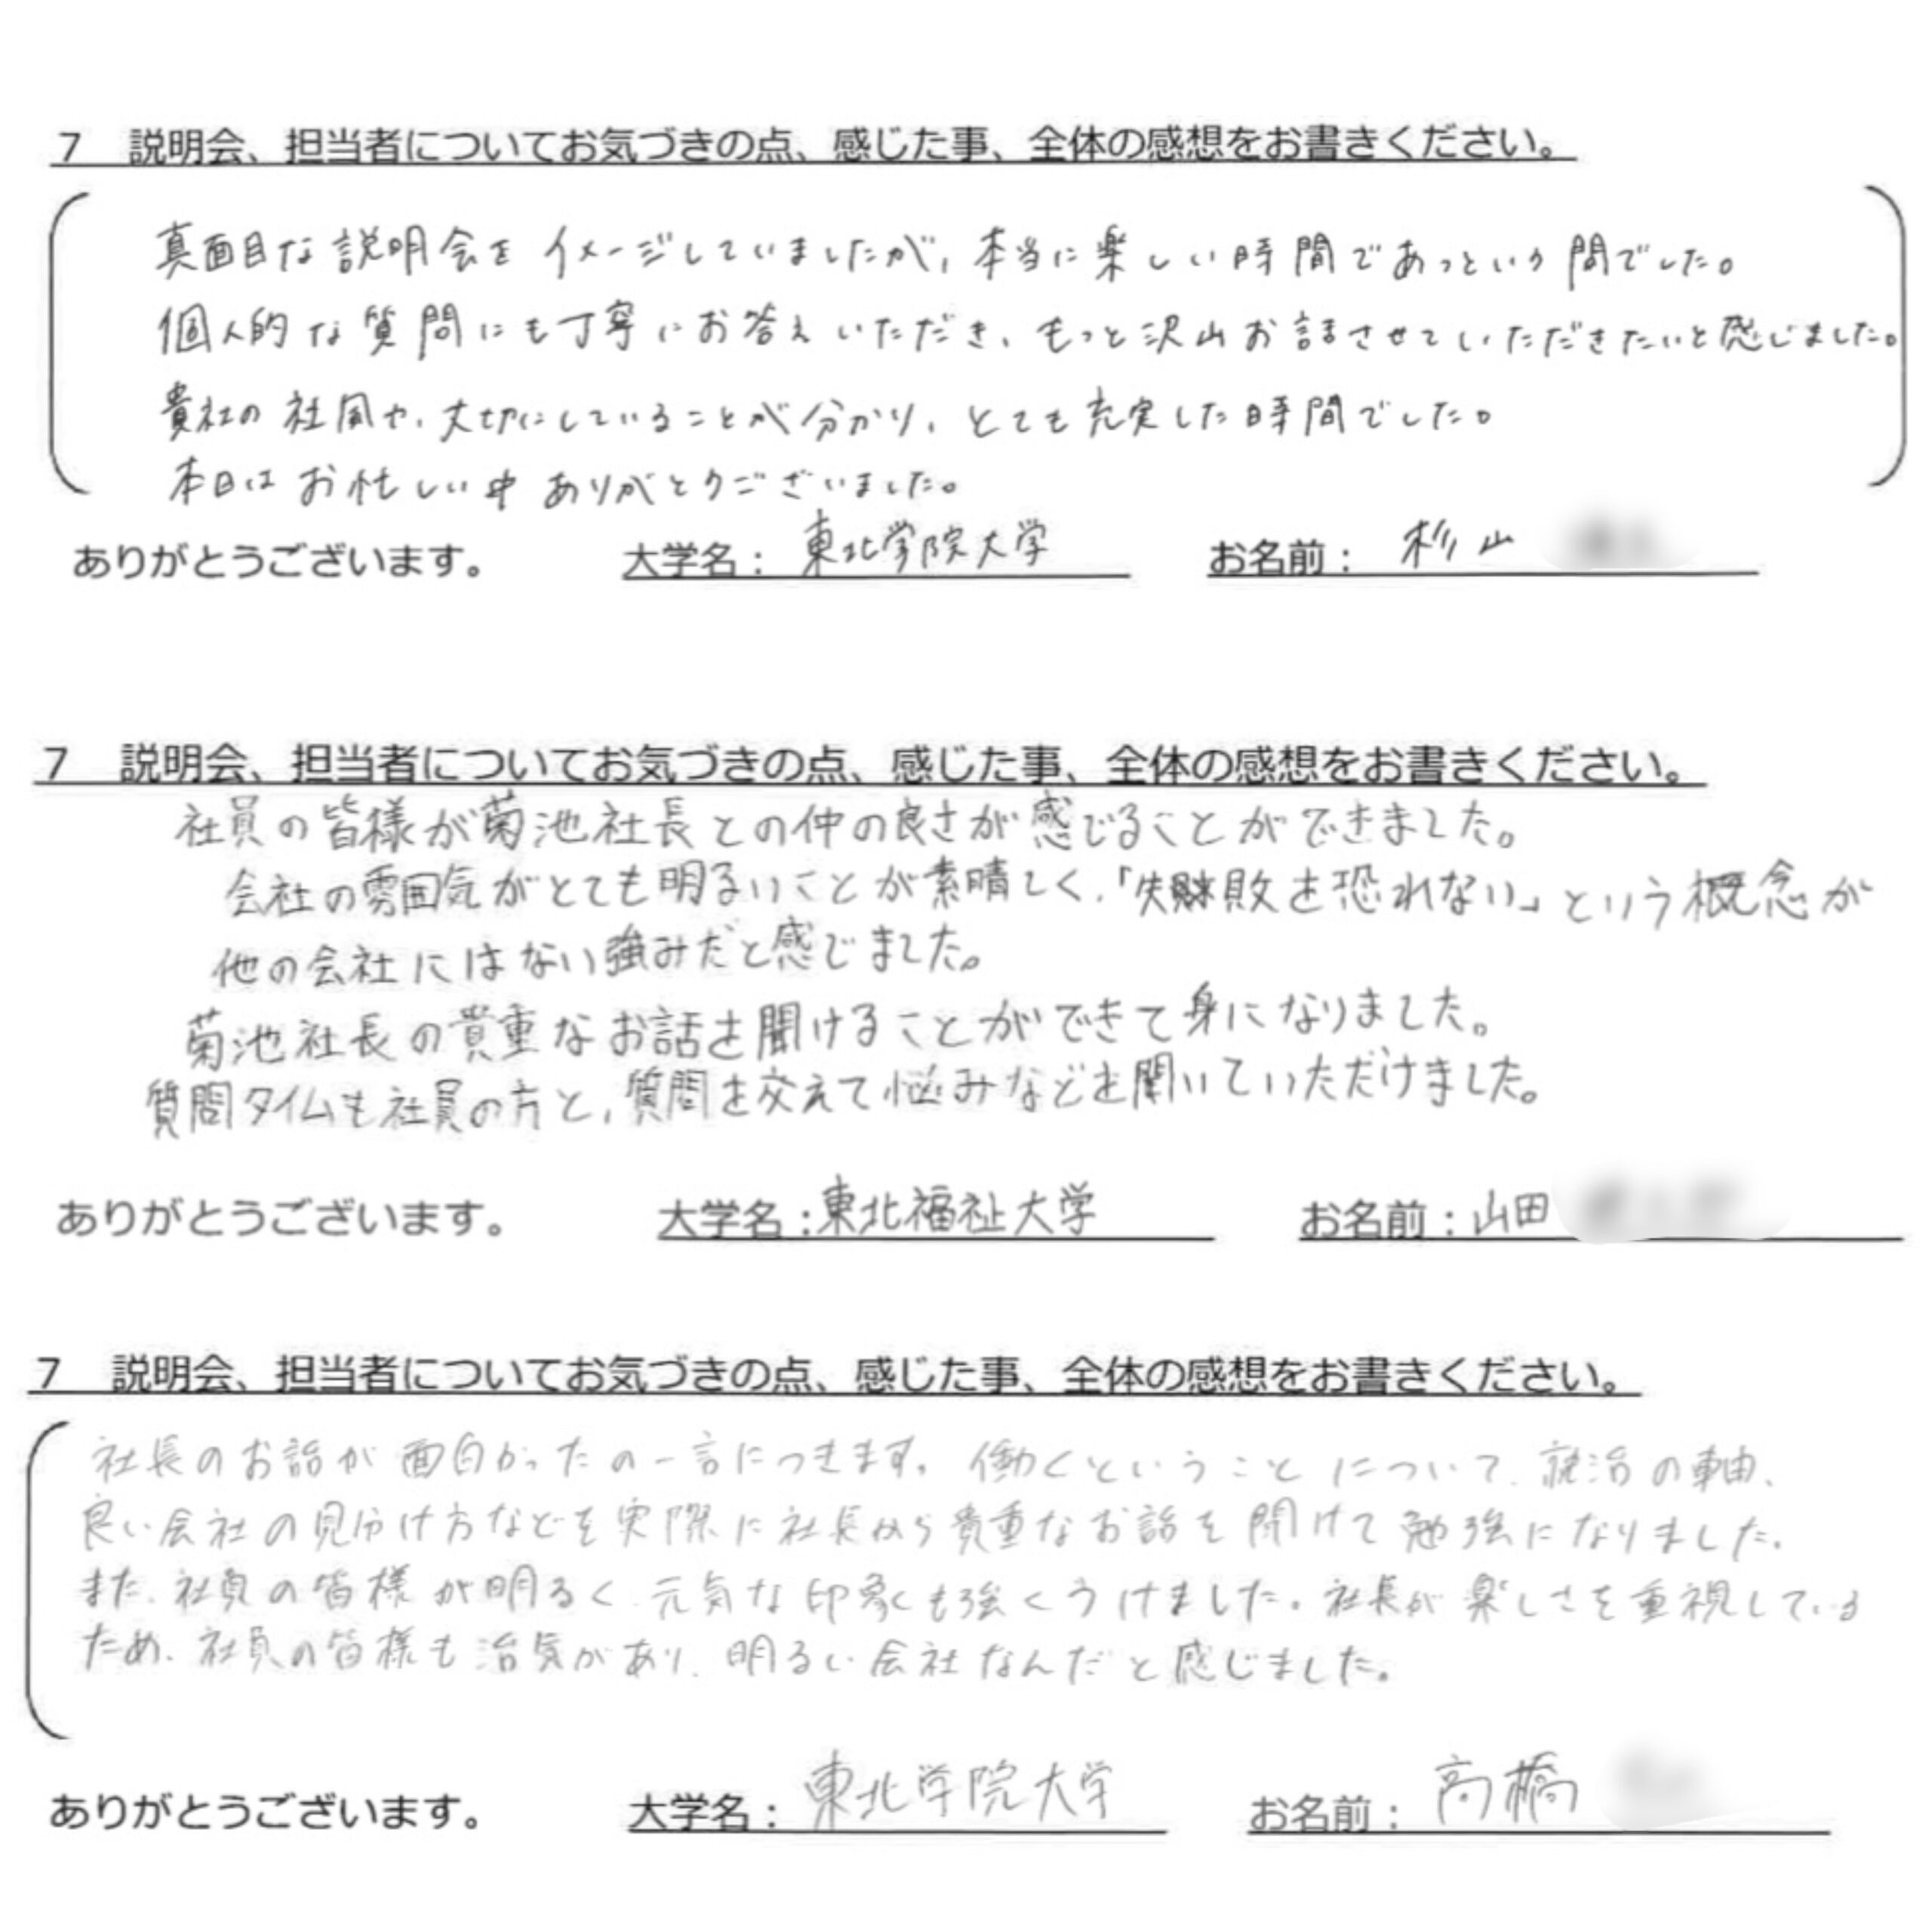 7 説明会、担当者についてお気づきの点、感じた事、全体の感想をお書きください。
真面目な説明会をイメージしていましたが、本当に楽しい時間であっという間でした。
個人的な質問にも丁寧にお答えいただき、もっと沢山お話させていただきたいと感じました。
貴社の社風や、大切にしていることが分かり、とても充実した時間でした。
本日はお忙しい中ありがとうございました。
ありがとうございます。 大学名：東北学院大学 お名前：杉山
7 説明会、担当者についてお気づきの点、感じた事、全体の感想をお書きください。
社員の皆様が菊池社長との仲の良さが感じることができました。
会社の雰囲気がとても明るいことが素晴しく、「失敗を恐れない」という概念が
他の会社にはない強みだと感じました。
菊池社長の貴重なお話を聞けることができて身になりました。
質問タイムも社員の方と、質問を交えて悩みなどを聞いていただけました。
ありがとうございます。 大学名：東北福祉大学 お名前：山田
7 説明会、担当者についてお気づきの点、感じた事、全体の感想をお書きください。
社長のお話が面白かったの一言につきます。働くということについて、就活の軸、
良い会社の見分け方などを実際に社長から貴重なお話を聞けて勉強になりました。
また、社員の皆様が明るく、元気な印象も強くうけました。社長が楽しさを重視している
ため、社員の皆様も活気があり、明るい会社なんだと感じました。
ありがとうございます。 大学名：東北学院大学 お名前：高橋